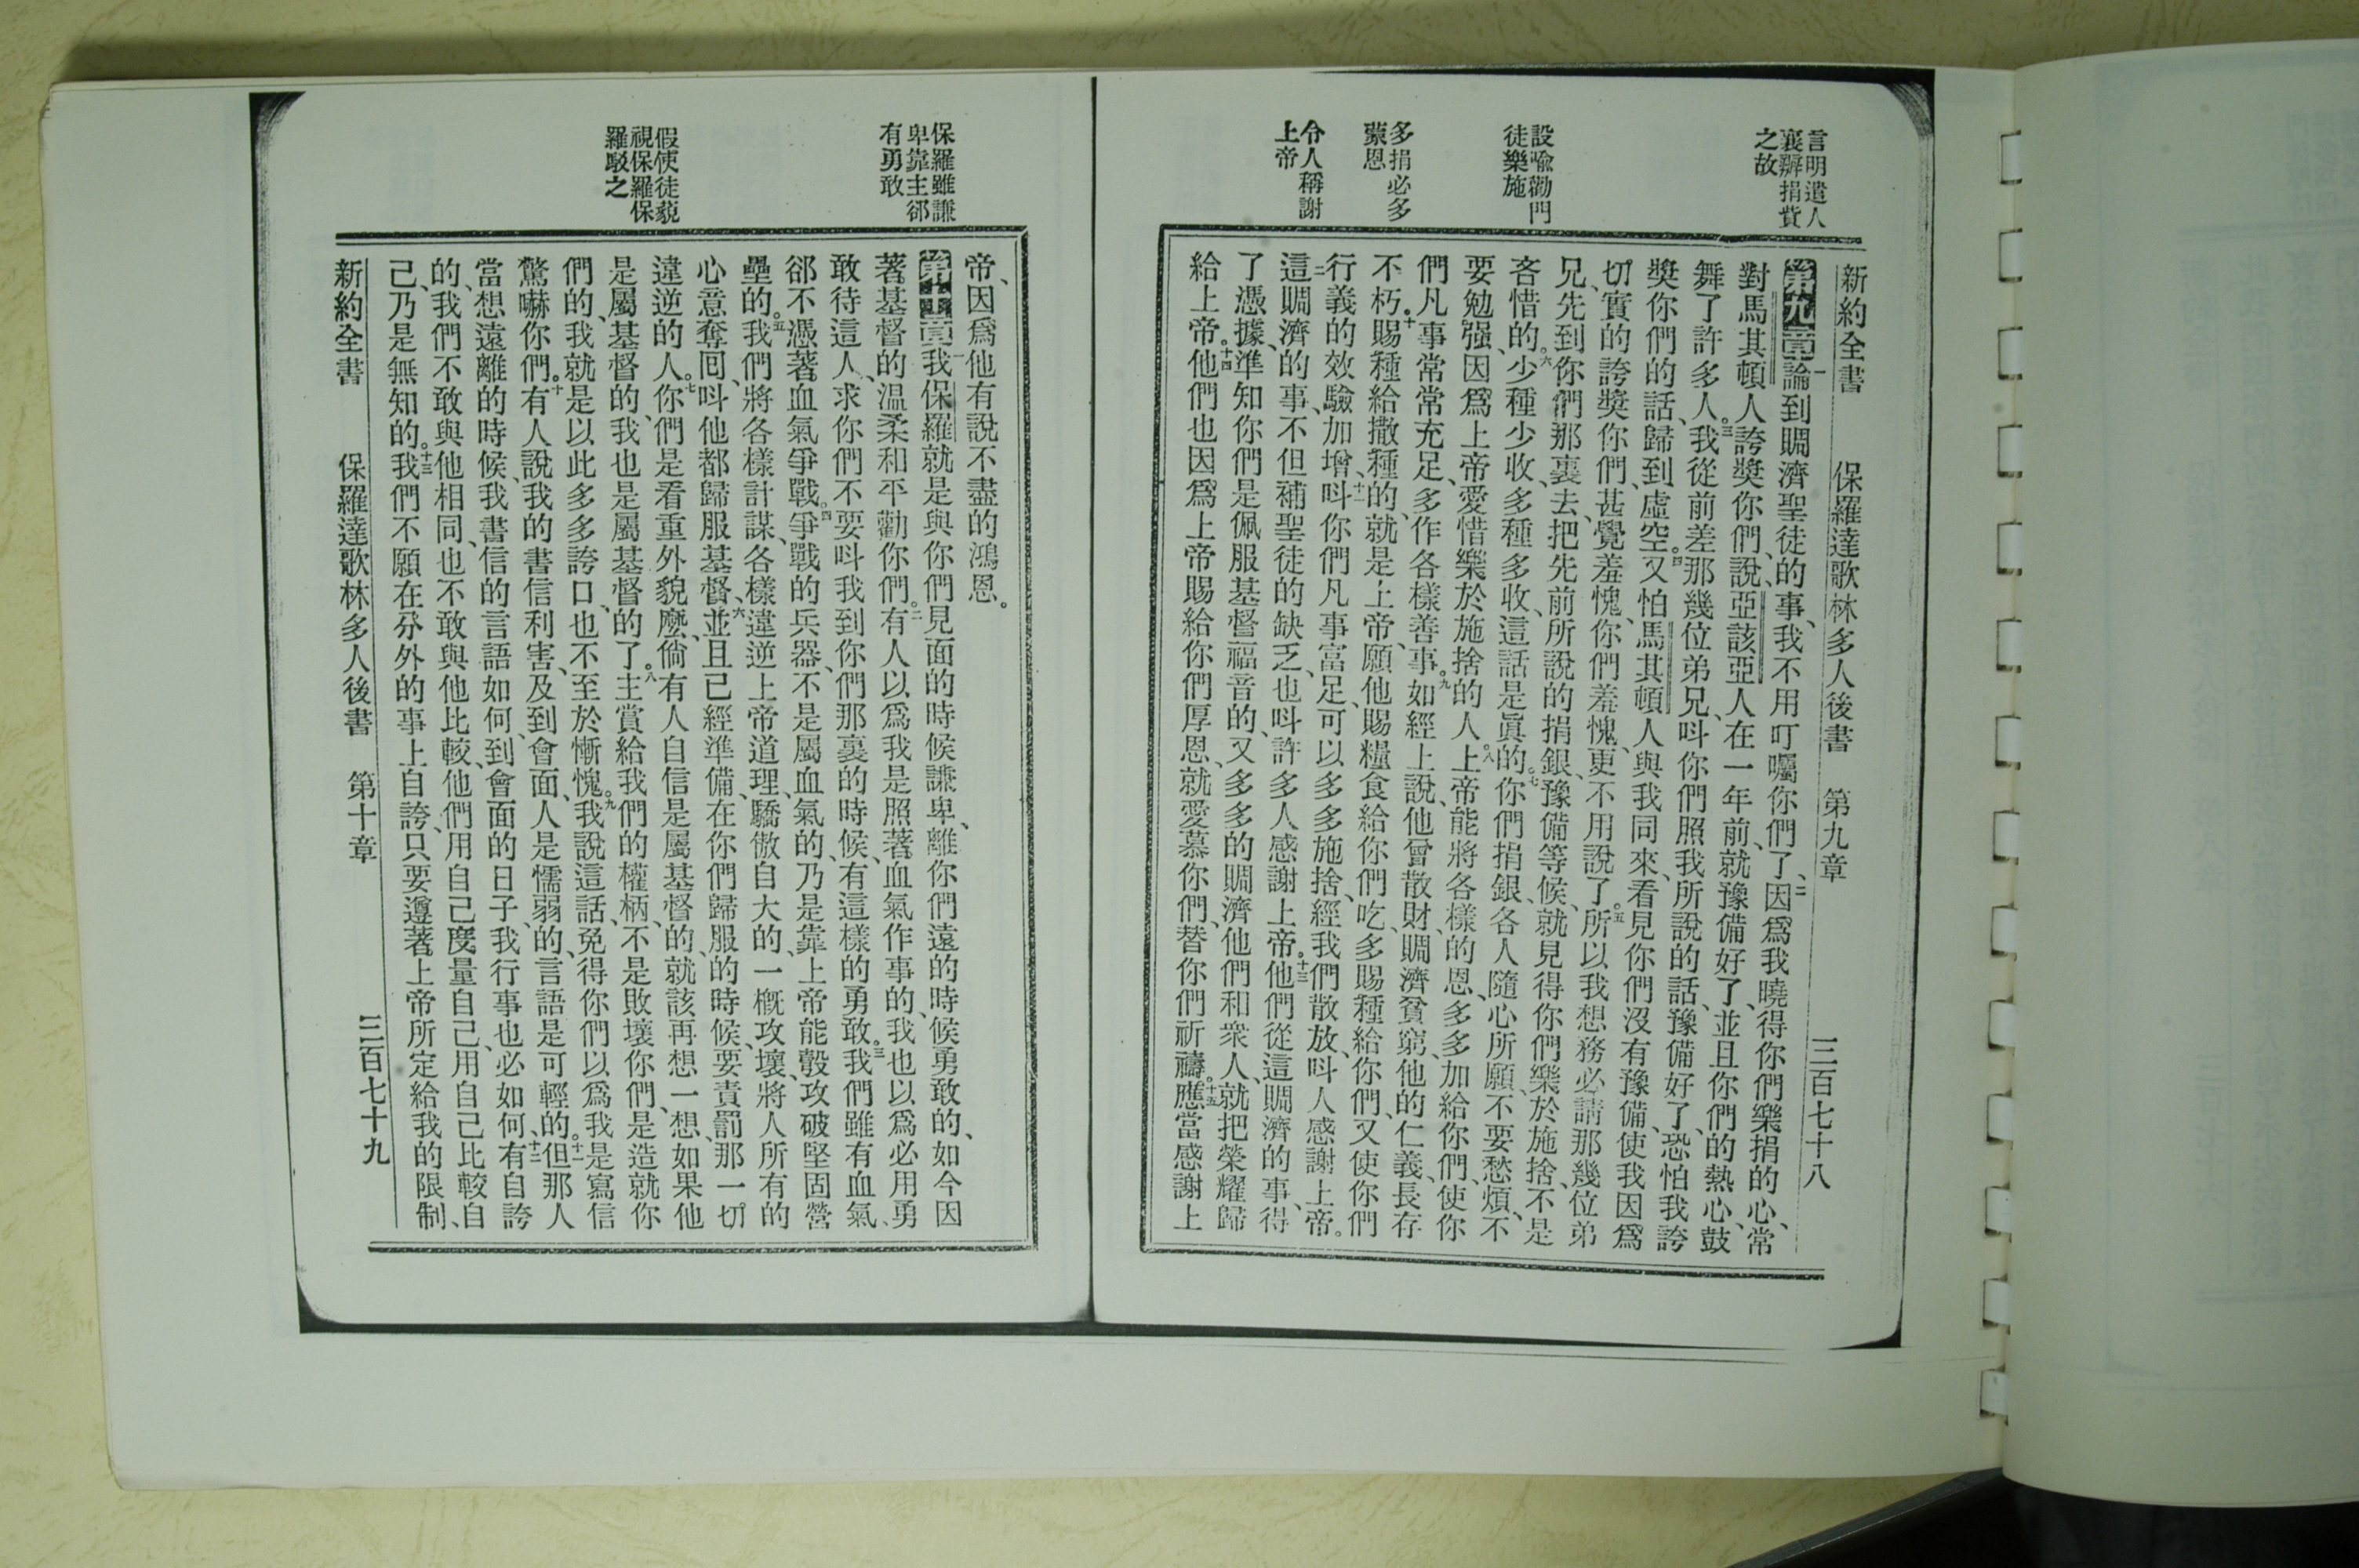 言明遣人
襄辦捐貲
之故
設喻勸門
徒樂施
多捐必多
蒙恩
令人稱謝
上帝
新約全書　保羅達歌林多人後書　第九章　三百七十八
第九章一論到賙濟聖徒的事、我不用叮囑你們了、二因爲我曉得你們樂捐的心、常
對馬其頓人誇獎你們、說、亞該亞人在一年前、就豫備好了、並且你們的熱心、鼓
舞了許多人。三我從前差那幾位弟兄、呌你們照我所說的話、豫備好了、恐怕我誇
獎你們的話、歸到虛空。四又怕馬其頓人與我同來、看見你們沒有豫備、使我因爲
切實的誇獎你們、甚覺羞愧、你們羞愧、更不用說了。五所以我想務必請那幾位弟
兄、先到你們那裏去、把先前所說的捐銀、豫備等候、就見得你們樂於施捨、不是
吝惜的。六少種少收、多種多收、這話是眞的。七你們捐銀、各人隨心所願、不要愁煩、不
要勉强、因爲上帝愛惜樂於施捨的人。八上帝能將各樣的恩、多多加給你們、使你
們凡事常常充足、多作各樣善事。九如經上說、他曾散財、賙濟貧窮、他的仁義、長存
不朽。十賜種給撒種的、就是上帝、願他賜糧食給你們吃、多賜種給你們、又使你們
行義的效驗加增、十一呌你們凡事富足、可以多多施捨、經我們散放、呌人感謝上帝。
十二這賙濟的事、不但補聖徒的缺乏、也呌許多人感謝上帝。十三他們從這賙濟的事、得
了憑據、準知你們是佩服基督福音的、又多多的賙濟他們和衆人、就把榮耀歸
給上帝。十四他們也因爲上帝賜給你們厚恩、就愛慕你們、替你們祈禱。十五應當感謝上
保羅雖謙
卑靠主郤
有勇敢
假使徒藐
視保羅保
羅駁之
帝、因爲他有說不盡的鴻恩。
第十章一我保羅就是與你們見面的時候謙卑、離你們遠的時候勇敢的、如今因
著基督的温柔和平勸你們。二有人以爲我是照著血氣作事的、我也以爲必用勇
敢待這人、求你們不要呌我到你們那裏的時候、有這樣的勇敢。三我們雖有血氣、
郤不憑著血氣爭戰。四爭戰的兵器、不是屬血氣的、乃是靠上帝能彀攻破堅固營
壘的。五我們將各樣計謀、各樣違逆上帝道理、驕傲自大的、一槪攻壞、將人所有的
心意奪囘、呌他都歸服基督、六並且已經準備、在你們歸服的時候、要責罰那一切
違逆的人。七你們是看重外貌麽、倘有人自信是屬基督的、就該再想一想、如果他
是屬基督的、我也是屬基督的了。八主賞給我們的權柄、不是敗壞你們、是造就你
們的、我就是以此多多誇口、也不至於慚愧。九我說這話、免得你們以爲我是寫信
驚嚇你們。十有人說我的書信利害、及到會面、人是懦弱的、言語是可輕的。十一但那人
當想遠離的時候、我書信的言語如何、到會面的日子、我行事也必如何、十二有自誇
的、我們不敢與他相同、也不敢與他比較、他們用自己度量自己、用自己比較自
己、乃是無知的。十三我們不願在分外的事上自誇、只要遵著上帝所定給我的限制、
新約全書　保羅達歌林多人後書　第十章　三百七十九